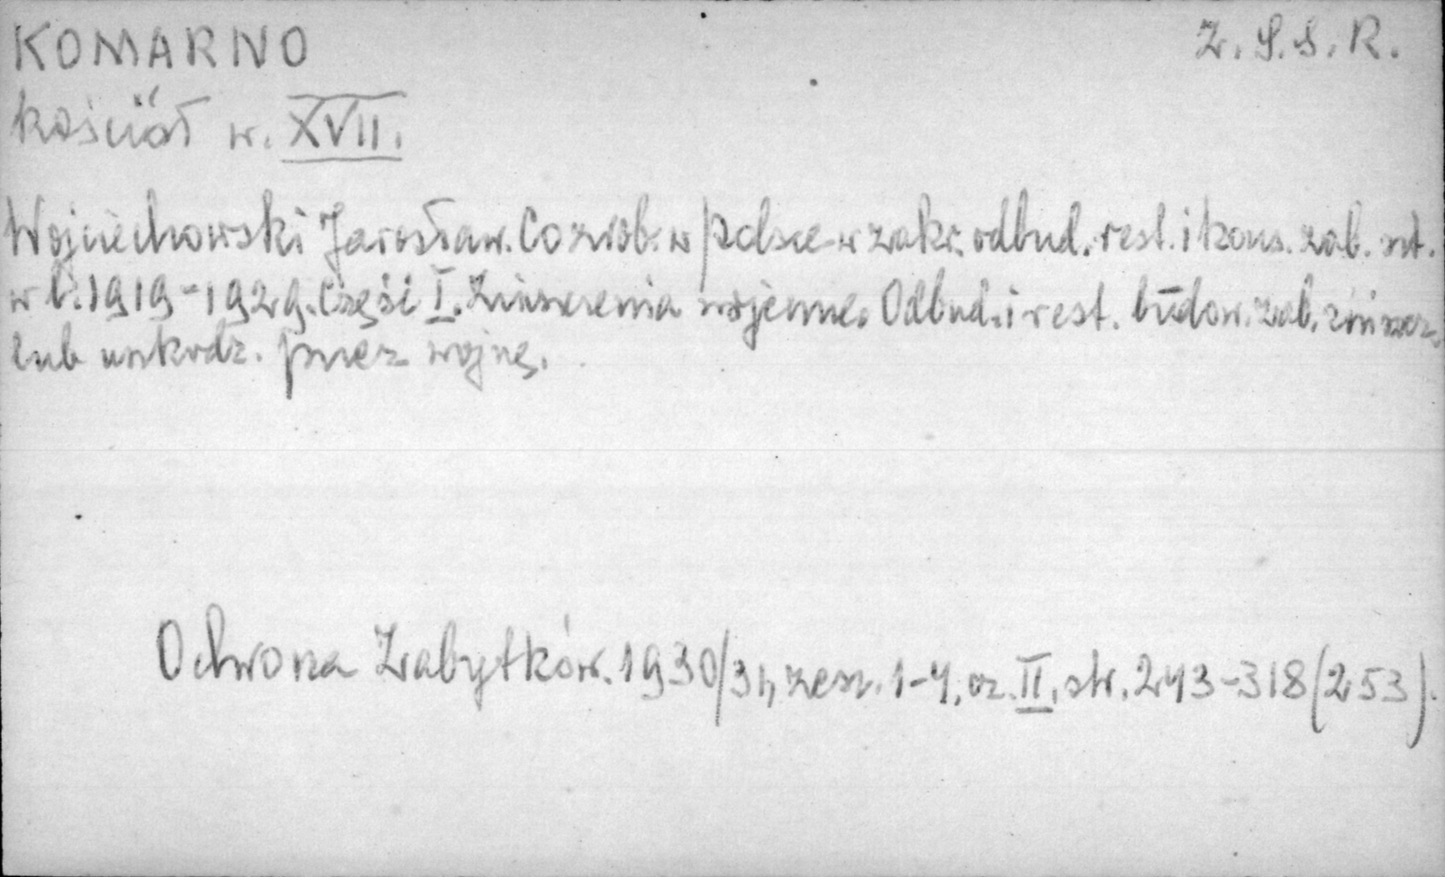 KOMARNO Z.S.S.R.
kościół w. XVII.
Wojciechowski Jarosław. Co zrob. w Polsce w zakr. odbud. rest. i kons. zab. szt.
w l. 1919-1929. Część I. Zniszczenia wojenne. Odbud. i rest. budow. zab. zniszcz.
lub uszkodz. przez wojnę.
Ochrona Zabytków. 1930/31, zesz. 1-4, cz. II, str. 243-318 (253).